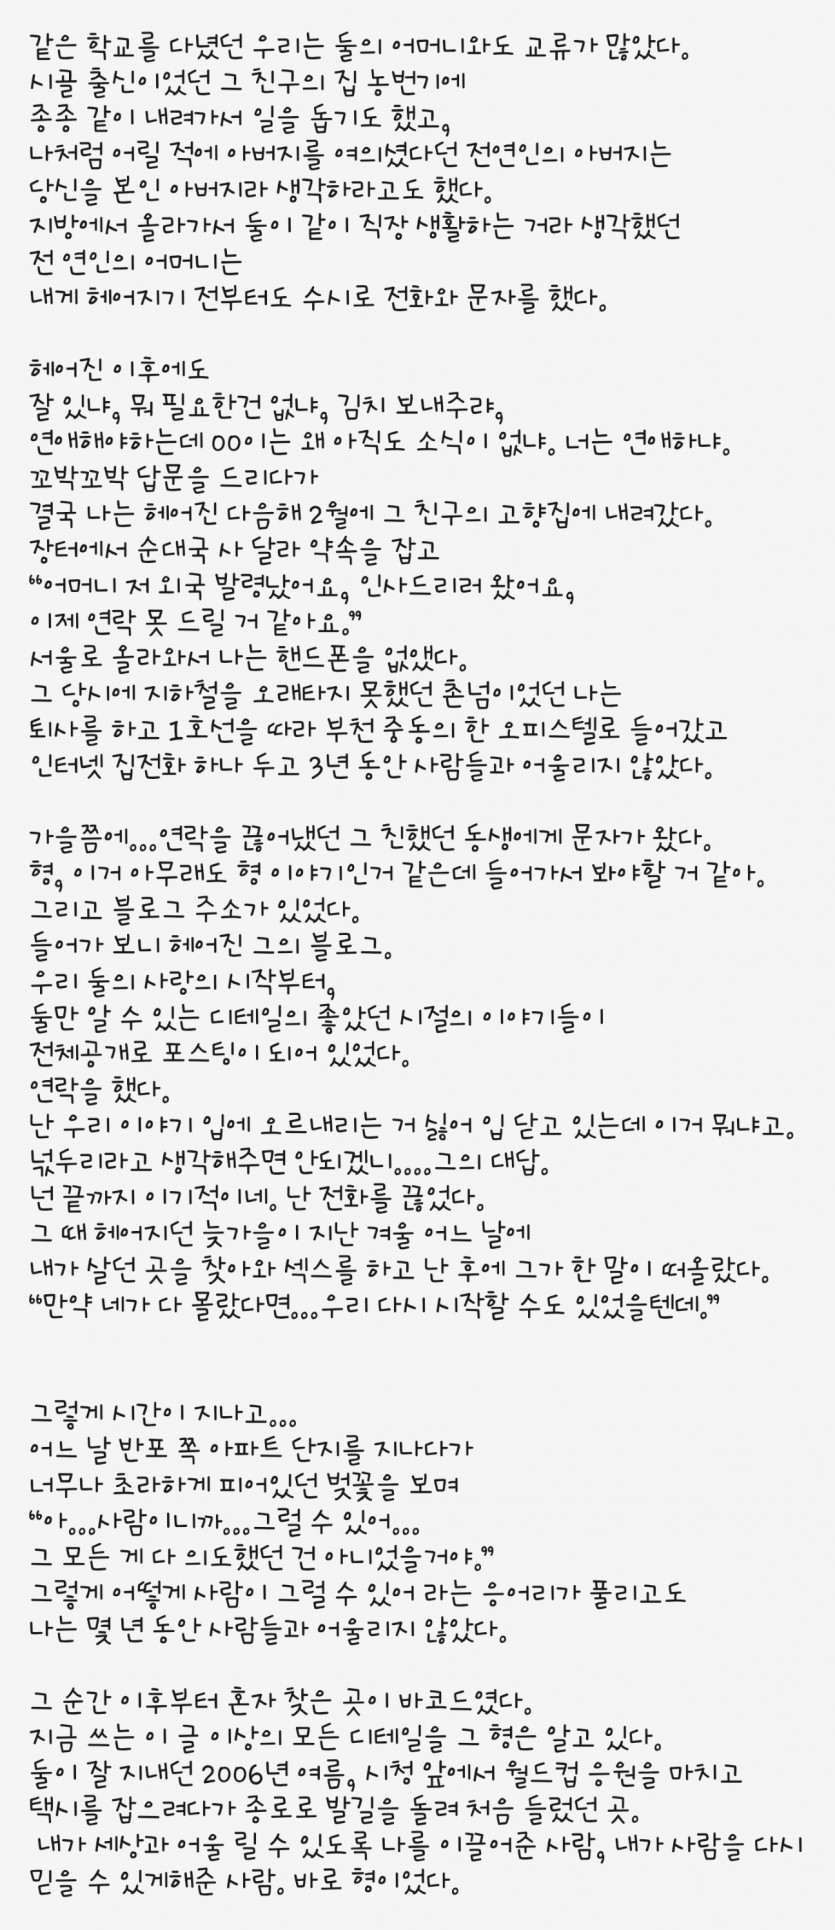 같은 학교를 다녔던 우리는 둘의 어머니와도 교류가 많았다.
시골 출신이었던 그 친구의 집 농번기에
종종 같이 내려가서 일을 돕기도 했고,
나처럼 어릴 적에 아버지를 여의셨다던 전연인의 아버지는
당신을 본인 아버지라 생각하라고도 했다.
지방에서 올라가서 둘이 같이 직장 생활하는 거라 생각했던
전 연인의 어머니는
내게 헤어지기 전부터도 수시로 전화와 문자를 했다.

헤어진 이후에도
잘 있냐, 뭐 필요한건 없냐, 김치 보내주랴,
연애해야하는데 00이는 왜 아직도 소식이 없냐. 너는 연애하냐.
꼬박꼬박 답문을 드리다가
결국 나는 헤어진 다음해 2월에 그 친구의 고향집에 내려갔다.
장터에서 순대국 사 달라 약속을 잡고
“어머니 저 외국 발령났어요, 인사드리러 왔어요,
이제 연락 못 드릴 거 같아요.”
서울로 올라와서 나는 핸드폰을 없앴다.
그 당시에 지하철을 오래타지 못했던 촌넘이었던 나는
퇴사를 하고 1호선을 따라 부천 중동의 한 오피스텔로 들어갔고
인터넷 집전화 하나 두고 3년 동안 사람들과 어울리지 않았다.

가을쯤에...연락을 끊어냈던 그 친했던 동생에게 문자가 왔다.
형, 이거 아무래도 형 이야기인거 같은데 들어가서 봐야할 거 같아.
그리고 블로그 주소가 있었다.
들어가 보니 헤어진 그의 블로그.
우리 둘의 사랑의 시작부터,
둘만 알 수 있는 디테일의 좋았던 시절의 이야기들이
전체공개로 포스팅이 되어 있었다.
연락을 했다.
난 우리 이야기 입에 오르내리는 거 싫어 입 닫고 있는데 이거 뭐냐고.
넋두리라고 생각해주면 안되겠니....그의 대답.
넌 끝까지 이기적이네. 난 전화를 끊었다.
그 때 헤어지던 늦가을이 지난 겨울 어느 날에
내가 살던 곳을 찾아와 섹스를 하고 난 후에 그가 한 말이 떠올랐다.
“만약 네가 다 몰랐다면...우리 다시 시작할 수도 있었을텐데.”

그렇게 시간이 지나고...
어느 날 반포 쪽 아파트 단지를 지나다가
너무나 초라하게 피어있던 벚꽃을 보며
“아...사람이니까...그럴 수 있어...
그 모든 게 다 의도했던 건 아니었을거야.”
그렇게 어떻게 사람이 그럴 수 있어 라는 응어리가 풀리고도
나는 몇 년 동안 사람들과 어울리지 않았다.

그 순간 이후부터 혼자 찾은 곳이 바코드였다.
지금 쓰는 이 글 이상의 모든 디테일을 그 형은 알고 있다.
둘이 잘 지내던 2006년 여름, 시청 앞에서 월드컵 응원을 마치고
택시를 잡으려다가 종로로 발길을 돌려 처음 들렀던 곳.
내가 세상과 어울 릴 수 있도록 나를 이끌어준 사람, 내가 사람을 다시
믿을 수 있게해준 사람. 바로 형이었다.